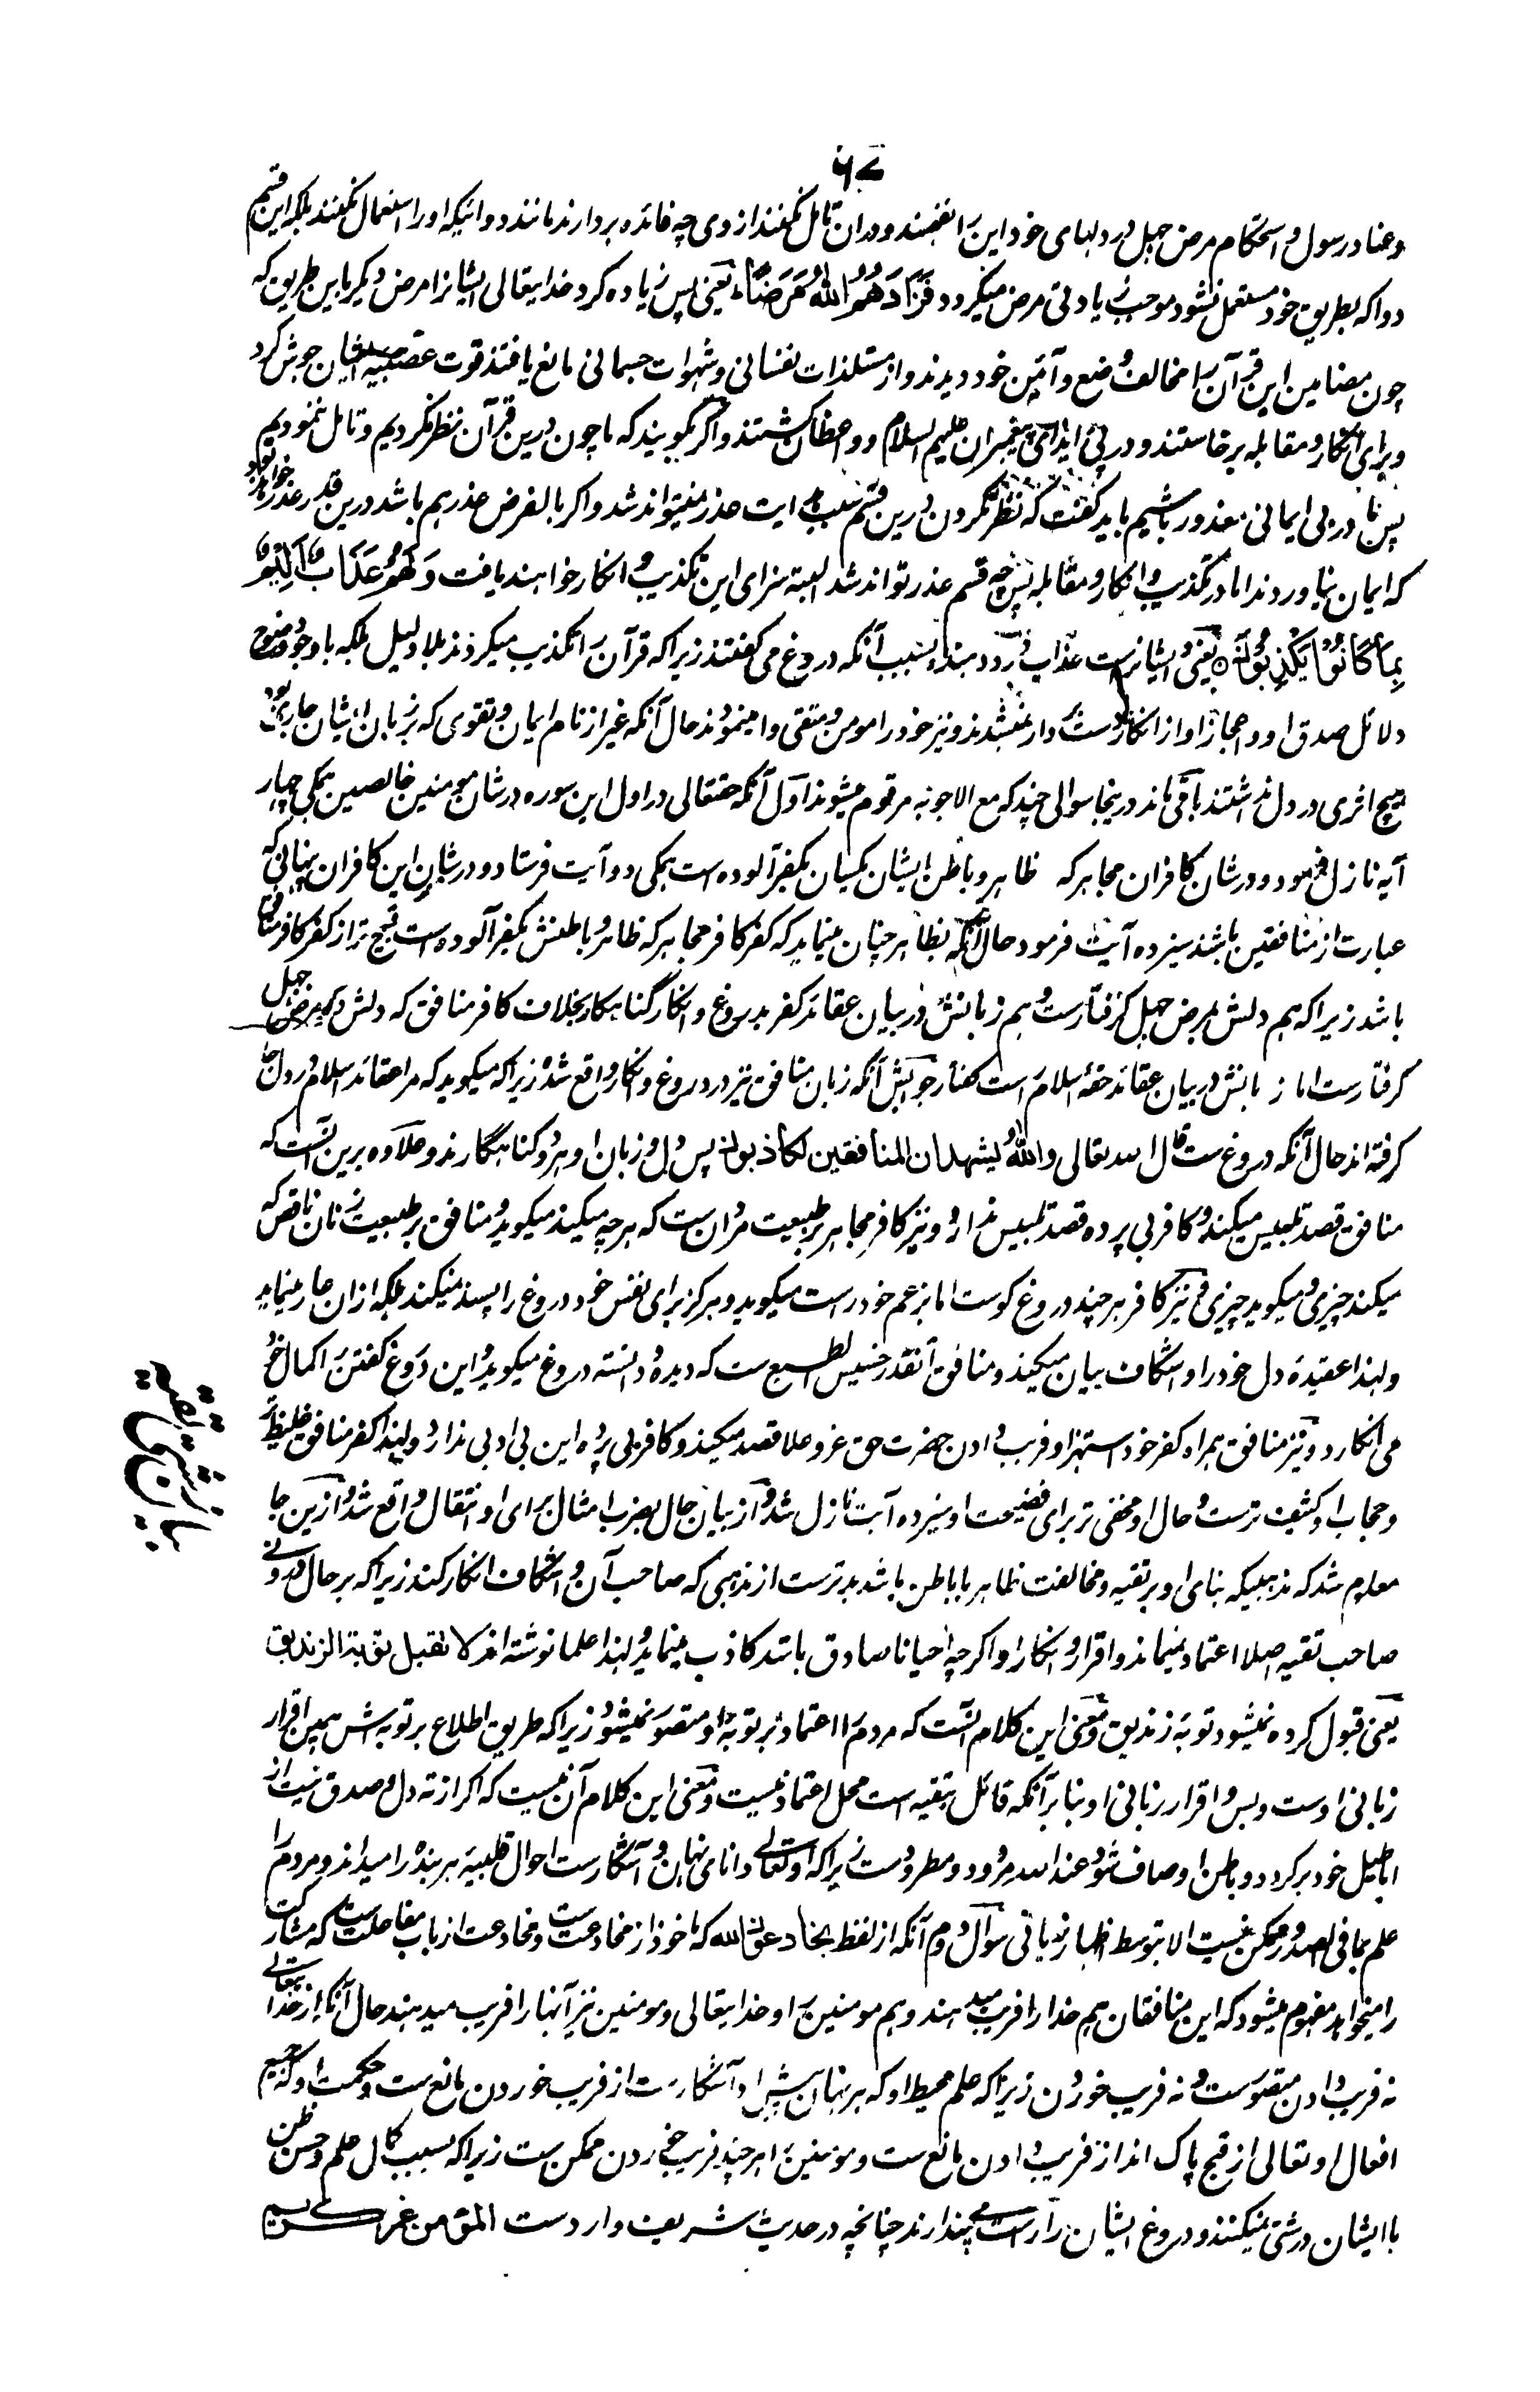 ۹۷
و عناد رسول و استحکام مرض جهل در دلهای خود این را نفهمند و دران تامل نکنند از وی چه فائده بردارند مانند دوائیکه او را استعمال نکنند بلکه این قسم
دوا که بطریق خود مستعمل نشود موجب زیادتی مرض میگردد فَزَادَهُمُ اللّٰهُ مَرَضًا یعنی پس زیاده کرد خدایتعالی ایشانرا مرض دیگر باین طریق که
چون مضامین این قرآن را مخالف وضع و آئین خود دیدند و از مستلذات نفسانی و شهوات جسمانی مانع یافتند قوت غضبیه ایشان جوش کرد
و برای انکار و مقابله برخاستند و در پی ایذای پیغمبران علیهم السلام و واعظان گشتند و اگر بگویند که ما چون درین قرآن نظر نکردیم و تامل ننمودیم
پس ما در بی ایمانی معذور باشیم باید گفت که نظر نکردن درین قسم هدایت عذر نمیتواند شد و اگر بالفرض عذر هم باشد درین قدر عذر خواهد بود
که ایمان نیاوردند اما در تکذیب و انکار و مقابله پس چه قسم عذر تواند شد البته سزای این تکذیب و انکار خواهند یافت وَلَهُمْ عَذَابٌ اَلِيْمٌ
بِمَا كَانُوْا يَكْذِبُوْنَ یعنی و ایشانرست عذاب دردمند بسبب آنکه دروغ می گفتند زیرا که قرآن را تکذیب میکردند بلا دلیل بلکه با وجود وضوح
دلائل صدق او و اعجاز او از انکار دست دار نمیشدند و نیز خود را مومن و متقی وامینمودند حال آنکه غیر از نام ایمان و تقوی که بر زبان ایشان جاری بود
هیچ اثری در دل نداشتند باقی ماند درینجا سوالی چند که مع الاجوبه مرقوم میشوند اول آنکه حقتعالی در اول این سوره در شان مومنین خالصین همگی چهار
آیه نازل فرمود و در شان کافران مجاهر که ظاهر و باطن ایشان یکسان بکفر آلوده ست همگی دو آیت فرستاد و در شان این کافران پنهانی که
عبارت از منافقین باشند سیزده آیت فرمود حال آنکه بظاهر چنان مینماید که کفر کافر مجاهر که ظاهر و باطنش بکفر آلوده است قبیح تر از کفر کافر منافق
باشد زیرا که هم دلش بمرض جهل گرفتارست و هم زبانش در بیان عقائد کفر بدروغ و انکار گناهگار بخلاف کافر منافق که دلش بمرض جهل
گرفتارست اما زبانش در بیان عقائد حقه اسلام راست گفتار جوابش آنکه زبان منافق نیز در دروغ و انکار واقع شد زیرا که میگوید که مرا عقائد اسلام در دل جا
گرفته اند حال آنکه دروغ ست قال الله تعالی واللّٰه یشهد ان المنافقین لکاذبون پس دل و زبان او هر دو گناهگارند و علاوه برین آنست که
منافق قصد تلبیس میکند و کافر بی پرده قصد تلبیس ندارد و نیز کافر مجاهر بر طبیعت مردان ست که هر چه میکند میگوید و منافق بر طبیعت زنان ناقص که
میکند چیزی و میگوید چیزی و نیز کافر هر چند دروغ گوست اما بزعم خود راست میگوید و هرگز برای نفس خود دروغ را پسند نمیکند بلکه ازان عار مینماید
و لهذا عقیده دل خود را واشگاف بیان میکند و منافق آنقدر خسیس الطبع ست که دیده و دانسته دروغ میگوید و این دروغ گفتن را کمال خود
می انگارد و نیز منافق همراه کفر خود استهزا و فریب دادن حضرت حق عز و علا قصد میکند و کافر بی پرده این بی ادبی ندارد و لهذا کفر منافق غلیظ تر
و حجاب او کثیف ترست و حال او مخفی تر برای فضیحت او سیزده آیت نازل شد و از بیان حال بضرب امثال برای او انتقال واقع شد و ازین جا
معلوم شد که مذهبیکه بنای او بر تقیه و مخالفت ظاهر با باطن باشد بدترست از مذهبی که صاحب آن واشگاف انکار کند زیرا که بر حال درونی
صاحب تقیه اصلا اعتماد نمیماند و اقرار و انکار او اگر چه احیانا صادق باشد کاذب مینماید و لهذا علما نوشته اند لا تقبل توبة الزندیق
یعنی قبول کرده نمیشود توبه زندیق و معنی این کلام آنست که مردم را اعتماد بر توبه او متصور نمیشود زیرا که طریق اطلاع بر توبه اش همین اقرار
زبانی اوست و بس و اقرار زبانی او بنا بر آنکه قائل بتقیه است محل اعتماد نیست و معنی این کلام آن نیست که اگر از ته دل و صدق نیت از
اباطیل خود برگردد و باطن او صاف شود عند الله مردود و مطرودست زیرا که اوتعالی دانای نهان و آشکارست احوال قلبیه هر بنده را میداند و مردم را
علم بما فی الصدور ممکن نیست الا بتوسط اظهار زبانی سوال دوم آنکه از لفظ یخادعون الله که ماخوذ از مخادعت ست و مخادعت از باب مفاعلت ست که مشارکت
را میخواهد مفهوم میشود که این منافقان هم خدا را فریب میدهند و هم مومنین را و خدایتعالی و مومنین نیز آنها را فریب میدهند حال آنکه از خدایتعالی
نه فریب دادن متصورست و نه فریب خوردن زیرا که علم محیط او که هر نهان پیش او آشکارست از فریب خوردن مانع ست و حکمت او که جمیع
افعال او تعالی از قبح پاک اند از فریب دادن مانع ست و مومنین را هر چند فریب خوردن ممکن ست زیرا که بسبب کمال علم و حسن ظن
با ایشان درشتی نمیکنند و دروغ ایشان را راست می پندارند چنانچه در حدیث شریف وارد ست المؤمن غر کریم
بیان زشتی تقیه